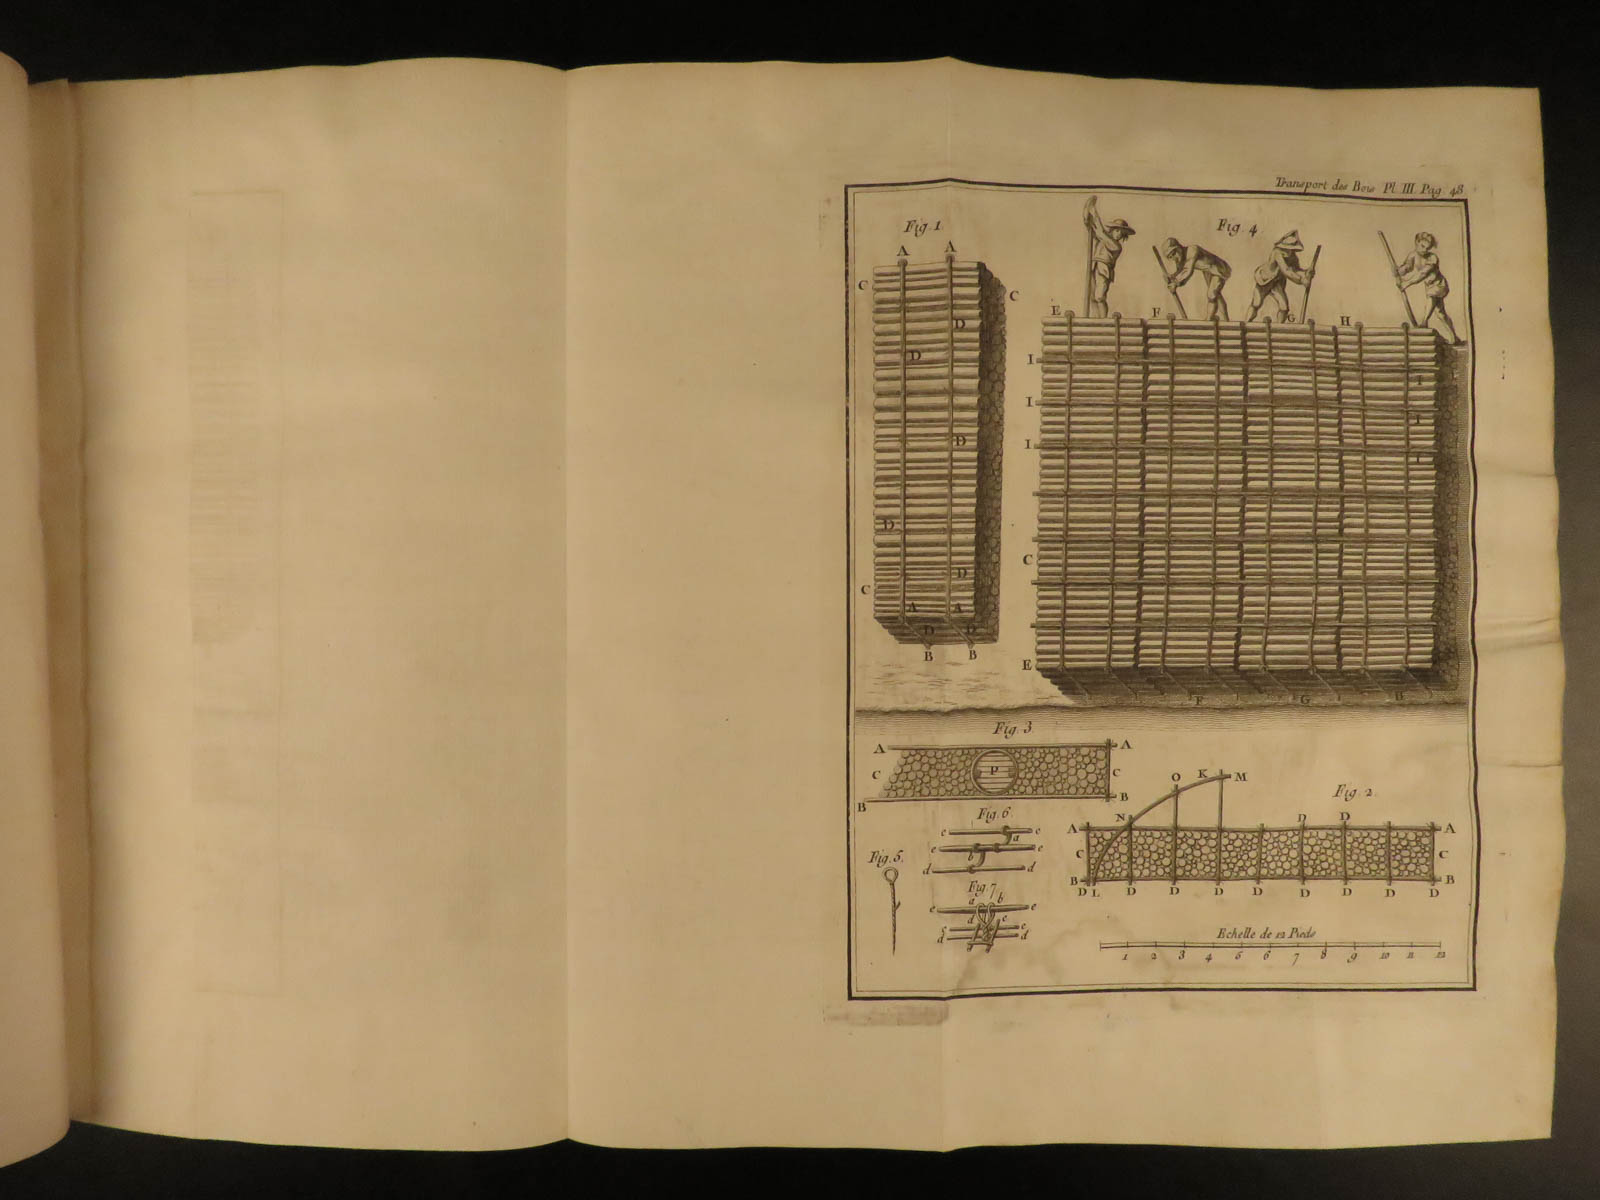 Transport des Bois Pl. III. Pag. 48.
Fig. 1.
Fig. 4
A A
C C
D
D
D
D
D
C
A A
D D
B B
E F G H
I I
I I
I I
C
E
F G B
Fig. 3.
A A
C P C
B B
Fig. 2.
O K M
N D D
A A
C C
B B
D L D D D D D D D D
Fig. 6.
c a c
e b e
d d
Fig. 5.
Fig. 7
a b
e e
d c
c
d d
Echelle de 12 Pieds
1 2 3 4 5 6 7 8 9 10 11 12